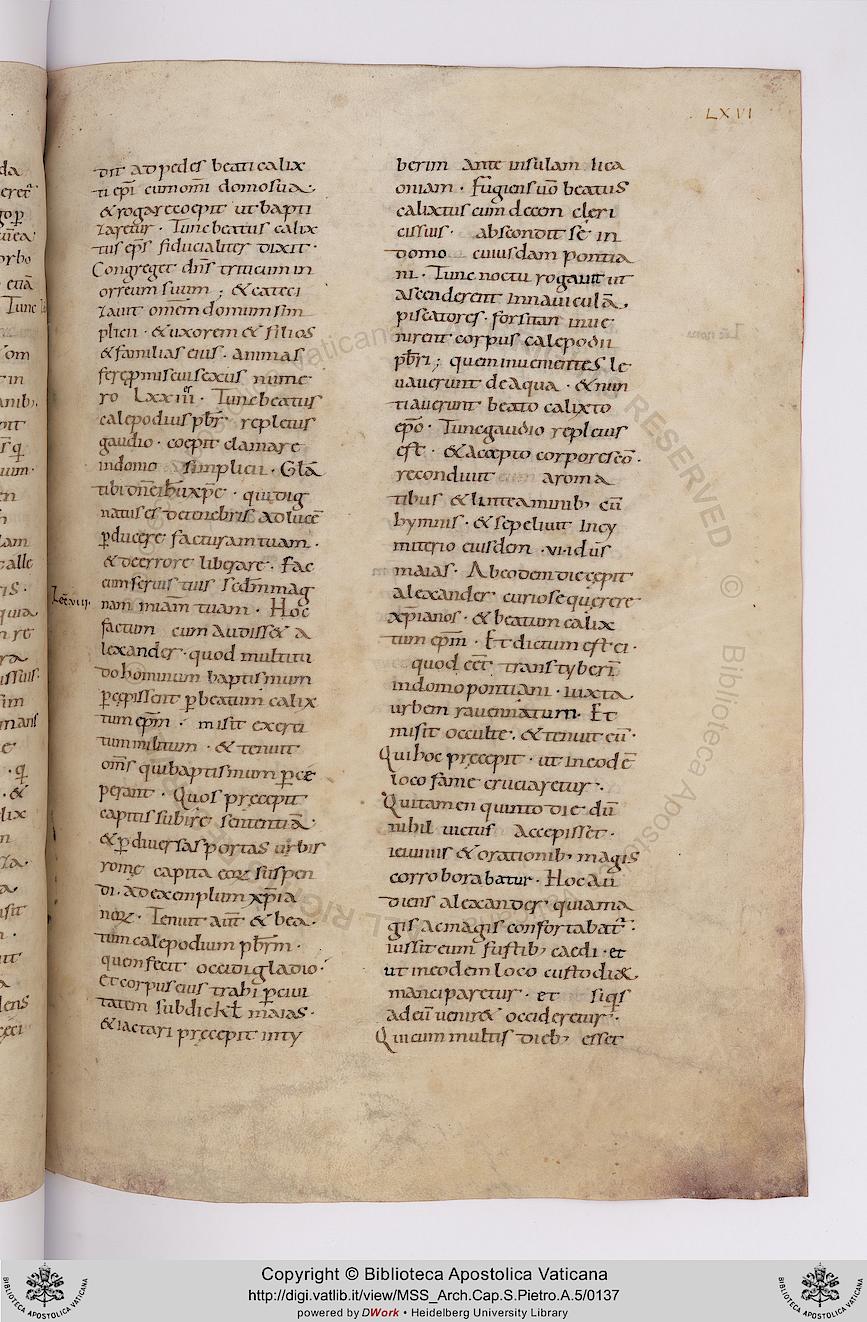 LXVI
dit ad pedes beati calix
ti ep̄i cum om̄i domo sua.
& rogare coepit ut bapti
zaretur. Tunc beatus calix
tus ep̄s fiducialiter dixit.
Congreget dn̄s triticum in
orreum suum; & cateci
zauit om̄em domum sim
plicii. & uxorem & filios
& familias eius. animas
fere ꝑmisciui sexus nume
ro LXXIII. Tunc beatus
calepodius pb̄r repletus
gaudio. coepit clamare
in domo simplicii. Glā
tibi dn̄e ih̄u xp̄e. qui dig
natus es de tenebris ad lucē
ꝑducere facturam tuam.
& de errore liberare. Fac
cum seruis tuis sedm̄ mag
nam miam̄ tuam. Hoc
factum cum audiss& a
lexander. quod multitu
do hominum baptismum
ꝑcepissent ꝑ beatum calix
tum ep̄m. misit exerci
tum militum. & tenuit
om̄s qui baptismum ꝑce
perant. Quos precepit
capitis subire sententiā.
& ꝑ diuersas portas urbis
rome capita eoꝝ suspen
di. ad exemplum xp̄ia
noꝝ. Tenuit aūt & bea
tum calepodium pb̄rm.
quem fecit occidi gladio.
et corpus eius trahi ꝑ ciui
tatem sub die kł maias.
& iactari precepit in ty
berim ante insulam lica
oniam. fugiens ūo beatus
calixtus cum decem cleri
cis suis. abscondit se in
domo cuiusdam pontia
ni. Tunc noctu rogauit ut
ascenderent in nauiculā.
piscatores. forsitan inue
nirent corpus calepodii
pb̄ri; quem inuenientes le
uauerunt de aqua. & nun
tiauerunt beato calixto
ep̄o. Tunc gaudio repletus
est. & accepto corpore seō.
recondiuit aroma
tibus & linteaminib; cū
hymnis. & sepeliuit in cy
miterio eiusdem. vi idus̄
maias. Ab eodem die cepit
alexander curiose querere
xp̄ianos. & beatum calix
tum ep̄m. Et dictum est ei.
quod eēt trans tyberī
in domo pontiani. iuxta
urbem rauennatum. Et
misit occulte. & tenuit eū.
Qui hoc precepit. ut in eodē
loco fame cruciaretur.
Qui tamen quinto die dū
nihil uictus accepisset.
ieiuniis & orationib; magis
corroborabatur. Hoc au
diens alexander quia ma
gis ac magis confortabat̄.
iussit eum fustib; caedi. et
ut in eodem loco custodiae
manciparetur. et siq̄s
ad eū uenir& occideretur.
Qui cum multis dieb; esset
Copyright © Biblioteca Apostolica Vaticana
http://digi.vatlib.it/view/MSS_Arch.Cap.S.Pietro.A.5/0137
powered by DWork • Heidelberg University Library